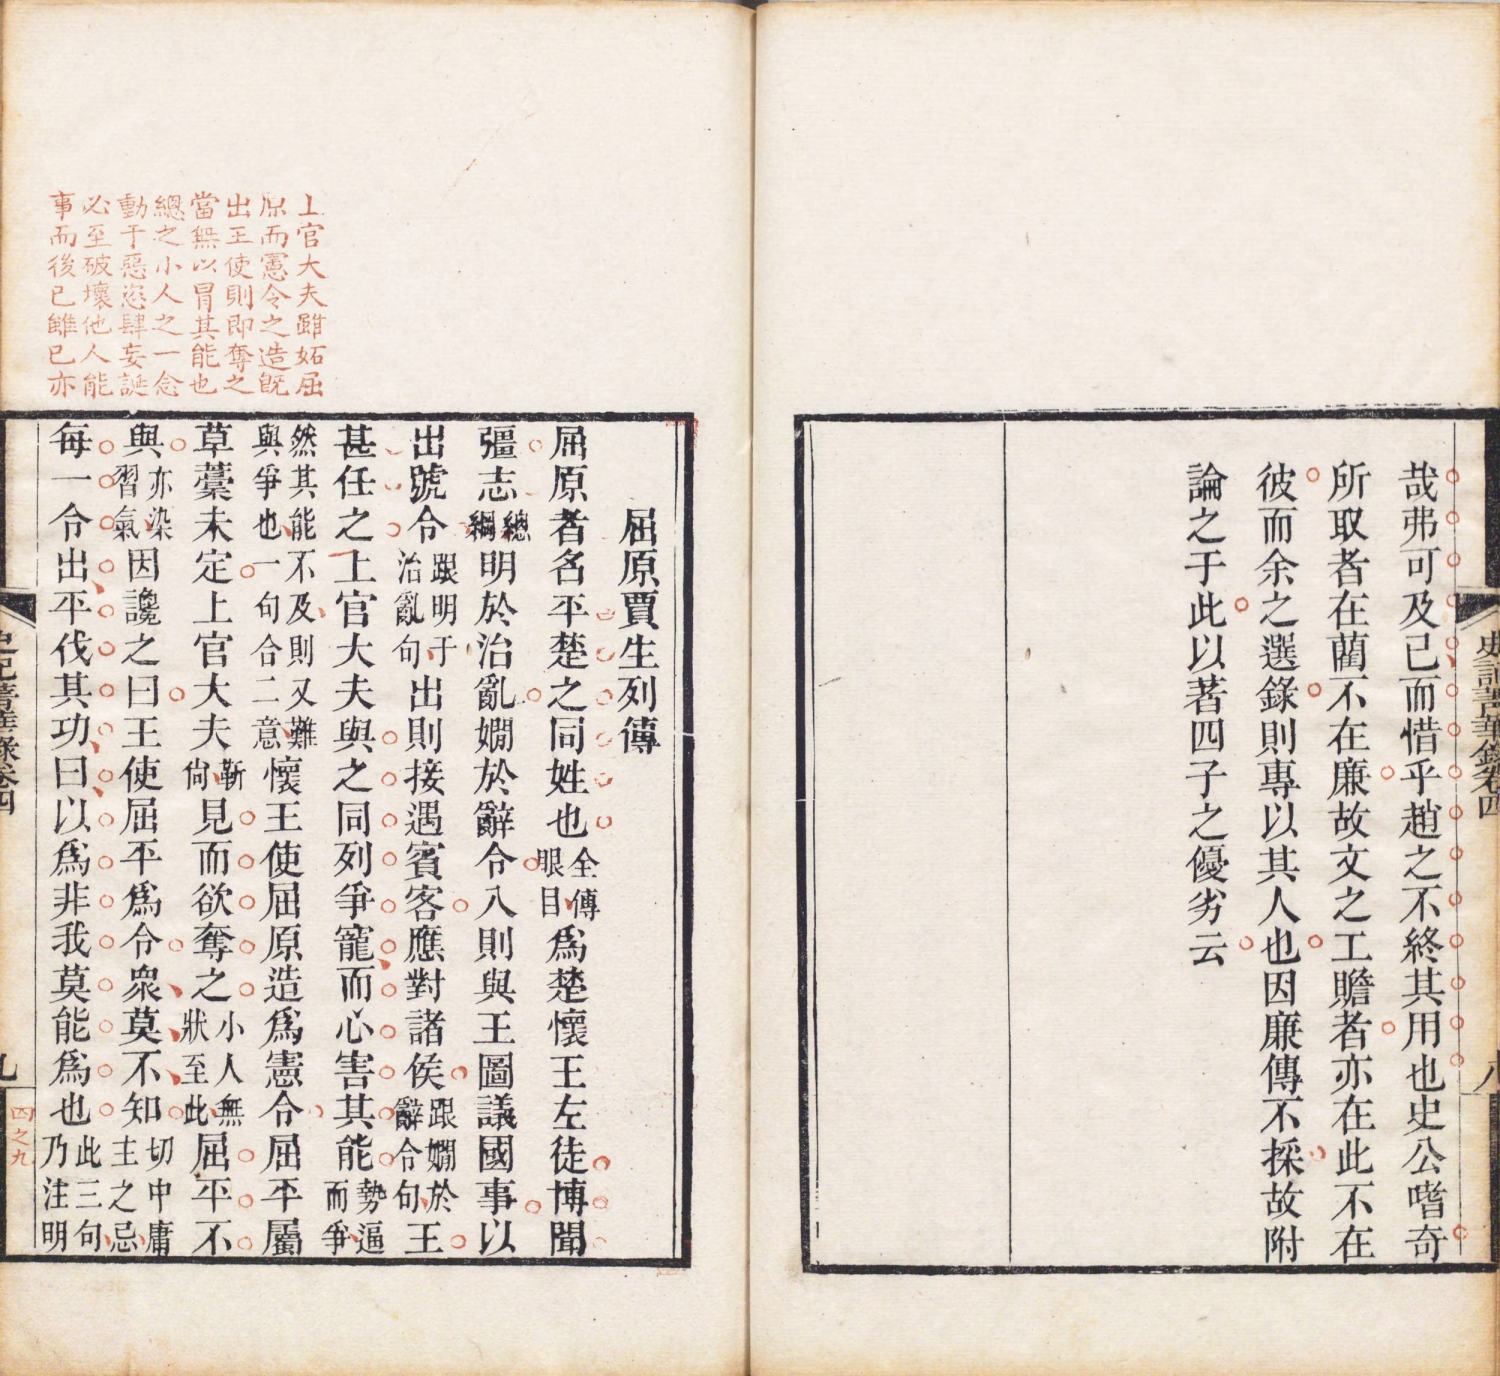 史記菁華錄卷四
八
哉弗可及已而惜乎趙之不終其用也史公嗜奇
所取者在藺不在廉故文之工贍者亦在此不在
彼而余之選錄則專以其人也因廉傳不採故附
論之于此以著四子之優劣云
上官大夫雖妬屈
原而憲令之造旣
出王使則即奪之
當無以冒其能也
總之小人之一念
動于惡恣肆妄誕
必至破壞他人能
事而後已雖已亦
屈原賈生列傳
屈原者名平楚之同姓也全傳眼目爲楚懷王左徒博聞
彊志總綱明於治亂嫺於辭令入則與王圖議國事以
出號令跟明于治亂句出則接遇賓客應對諸侯跟嫺於辭令句王
甚任之上官大夫與之同列爭寵而心害其能勢逼而爭
然其能不及則又難與爭也一句合二意懷王使屈原造爲憲令屈平屬
草藁未定上官大夫靳尙見而欲奪之小人無狀至此屈平不
與亦染習氣因讒之曰王使屈平爲令衆莫不知切中庸主之忌
每一令出平伐其功曰以爲非我莫能爲也此三句乃注明
史記菁華錄卷四
九
四之九